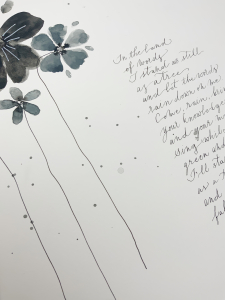 In the land
of words,
I stand as still
as a tree,
and let the words
rain down on me
Come, rain, bri
your knowledge
and your m
sing while
green and
I'll sta
as a t
and